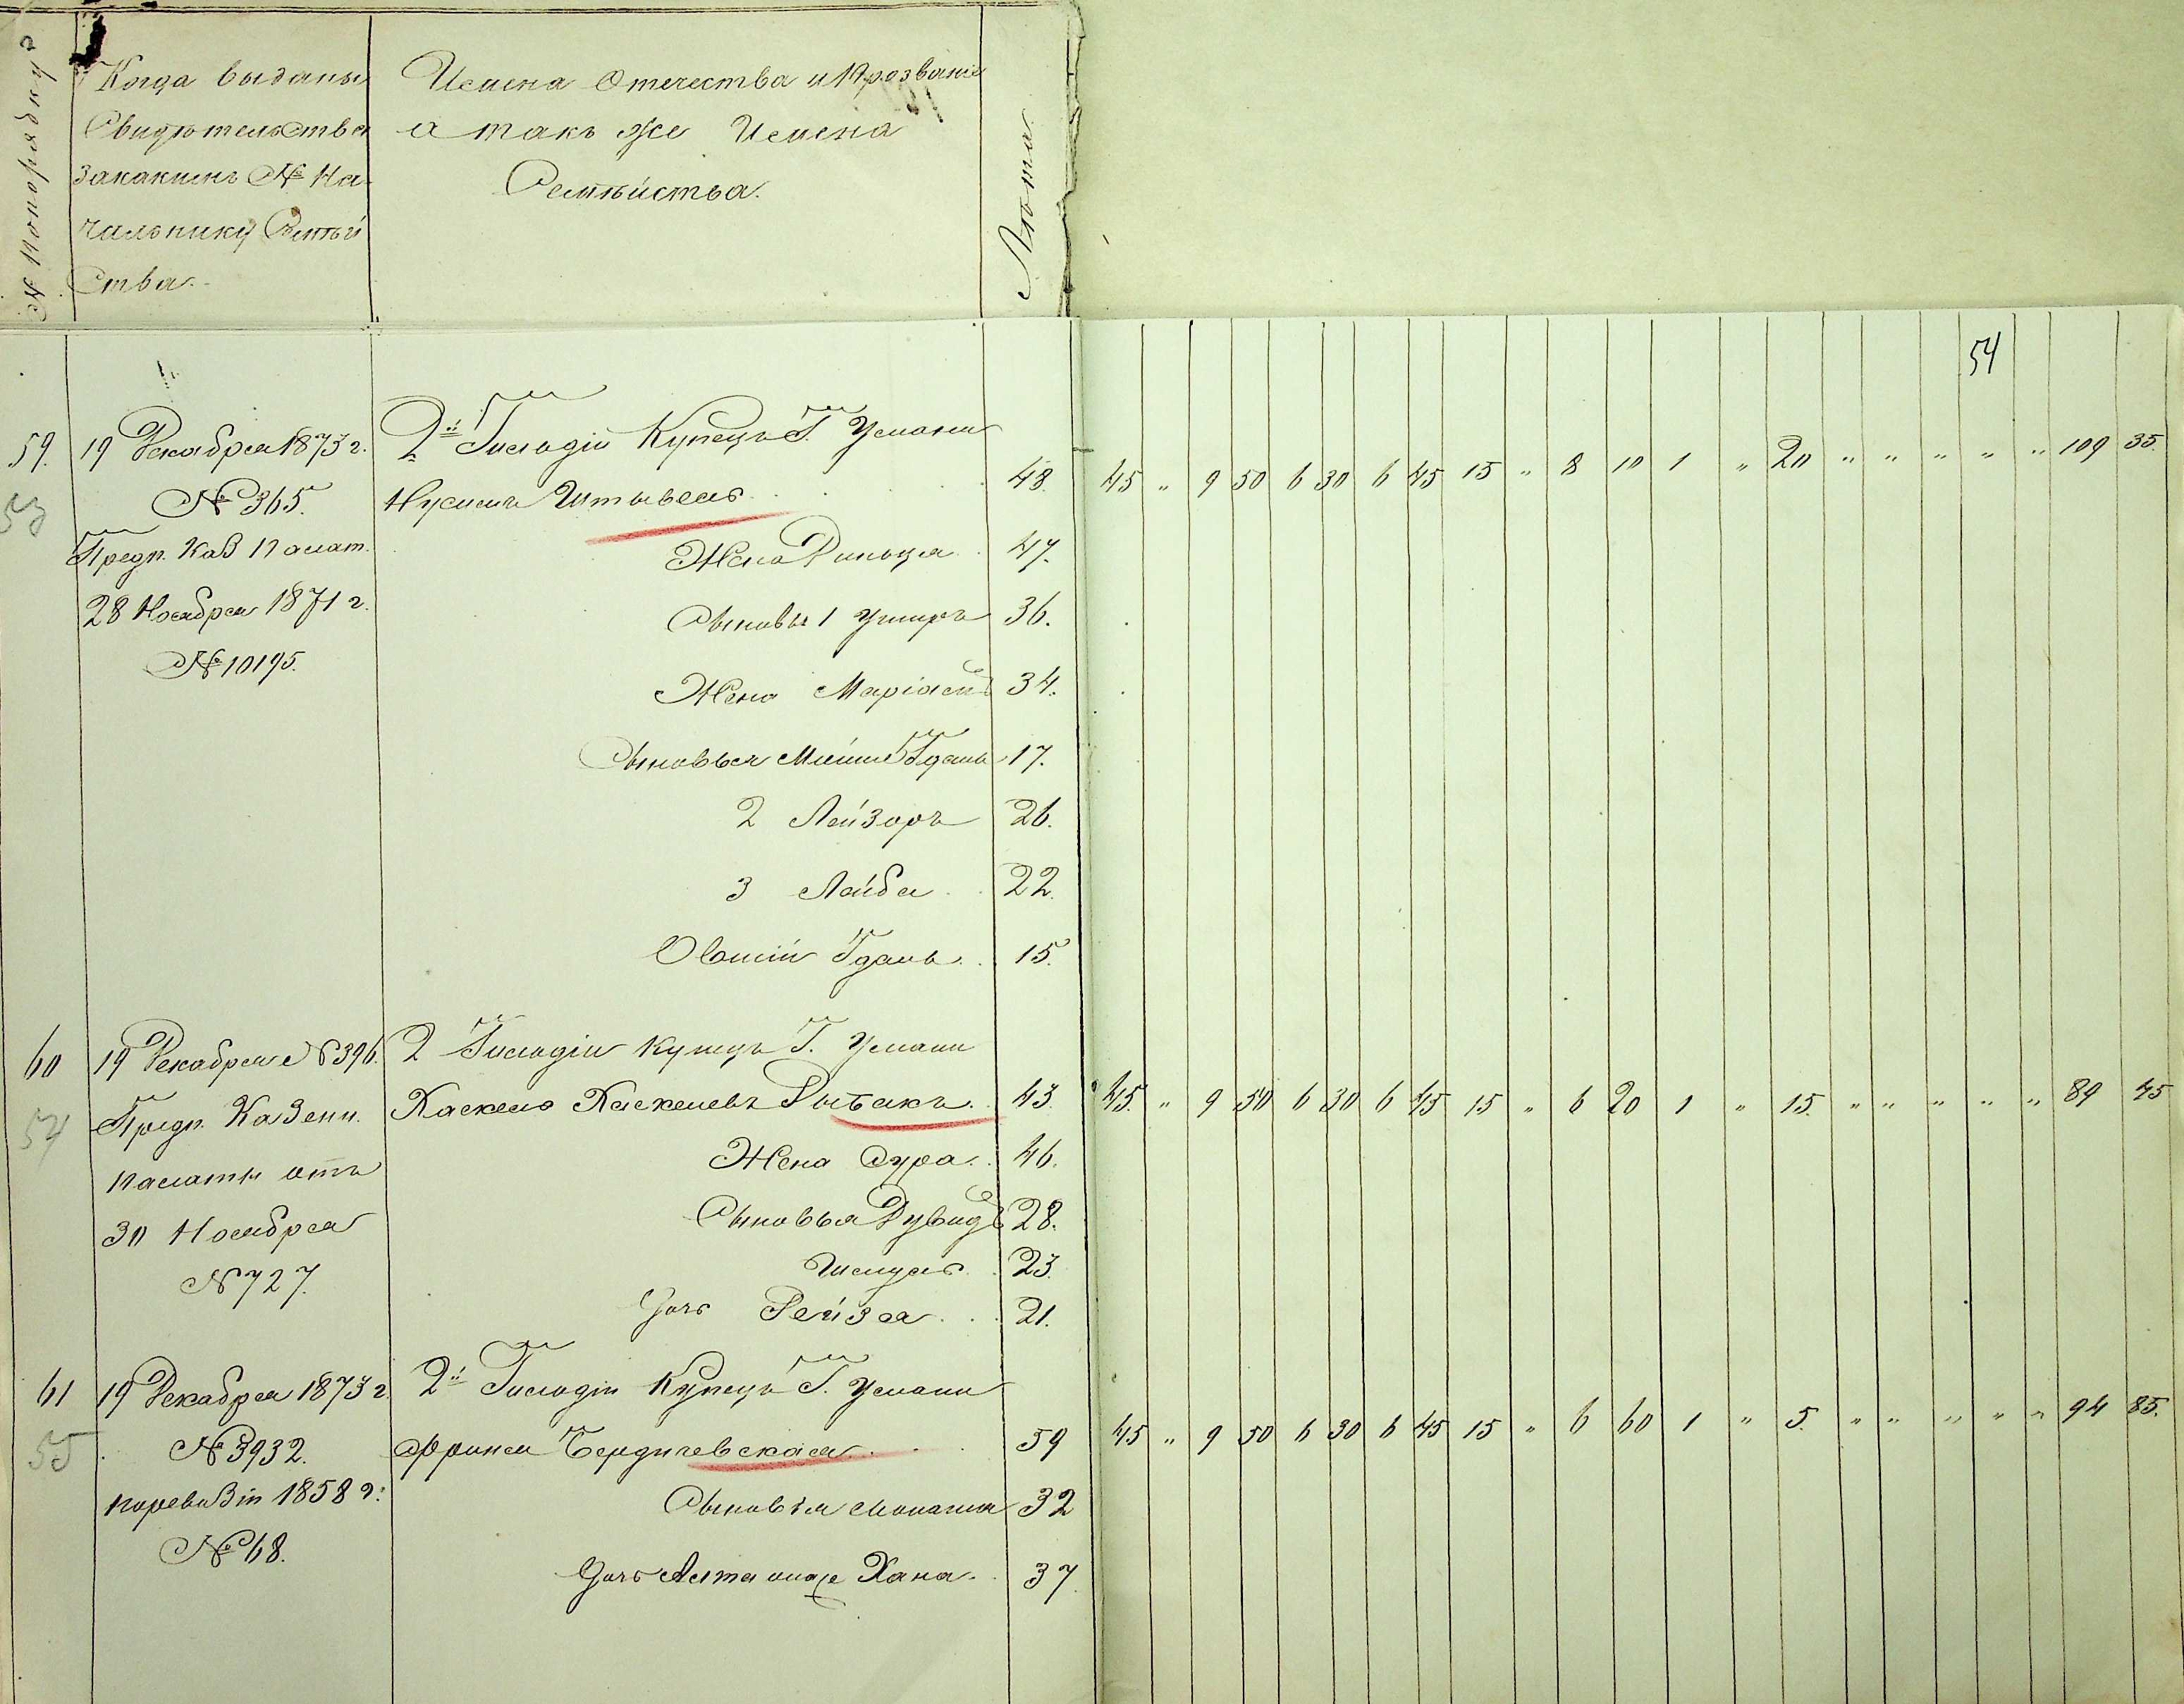 № попорядку
Когда выданы
Свидѣтельства
закакимъ № На-
чальнику Семѣй
ства.
Имена Отечества и Прозваніе
а такъ же Имена
Семѣйства.
Лѣта
54
59. 19 Декабря 1873 г. 2й Гильдіи Купецъ Г. Умани
53 № 365. Нусимъ Штывель 48. 45 " 9 50 6 30 6 45 15 " 8 10 1 " 20 " " " " " 109 35.
Предп. Каз Палат. Жена Диньця 47.
28 Ноября 1871 г. Сыновья 1 Ушеръ 36.
№ 10195. Жена Маріамъ 34.
Сыновья Гдаль 17.
2 Лейзоръ 26.
3 Лейба 22.
Овшій Гдаль 15.
60 19 Декабря № 396. 2 Гильдіи купецъ Г. Умани
54 Предп. Казенн. Хаскель Хаскелевъ Рыбакъ 43. 45. " 9 50 6 30 6 45 15 " 6 20 1 " 15. " " " " " 89 45
палаты отъ Жена Сура 46.
30 Ноября Сыновья Дувидъ 28.
№ 727. Шмуль 23.
Дочь Рейзя 21.
61 19 Декабря 1873 г. 2й Гильдіи Купецъ Г. Умани
55 № 3932. Фрима Бердичевская 59 45 " 9 50 6 30 6 45 15 " 6 60 1 " 5. " " " " " 94 85.
поревизіи 1858 г: Сыновья 32
№ 68. Дочь Хана 37.